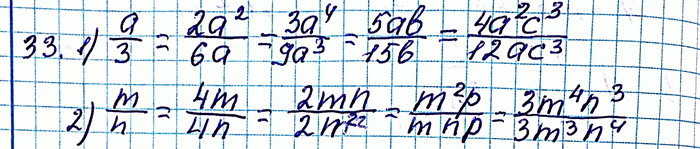 33. 1) a/3 = 2a²/6a = 3a⁴/9a³ = 5ab/15b = 4a²c³/12ac³
2) m/n = 4m/4n = 2mn/2n² = m²p/mnp = 3m⁴n³/3m³n⁴